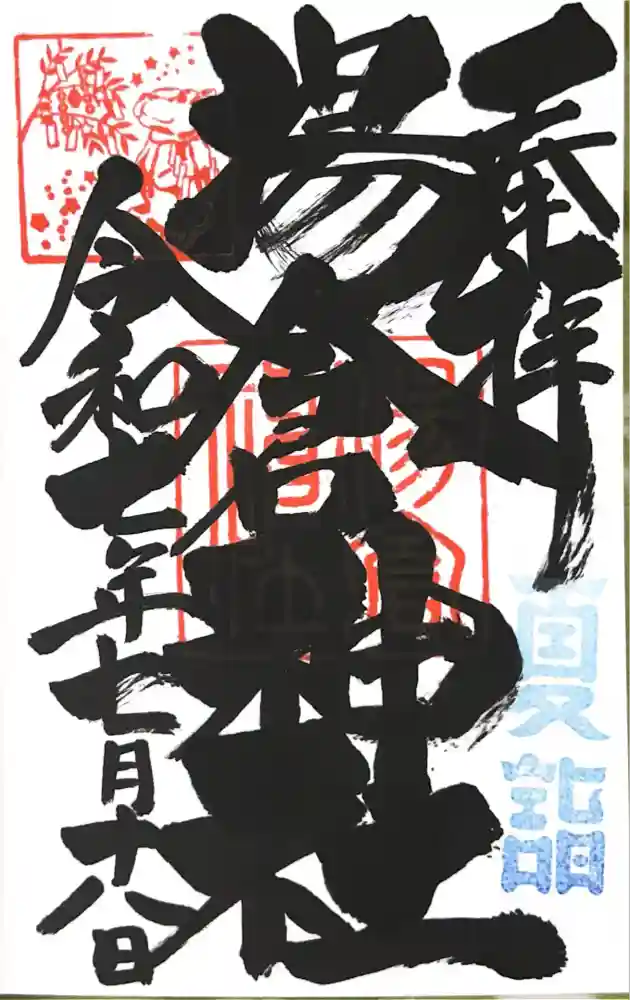 奉拝
夏詣
揚倉神社
令和七年七月十八日